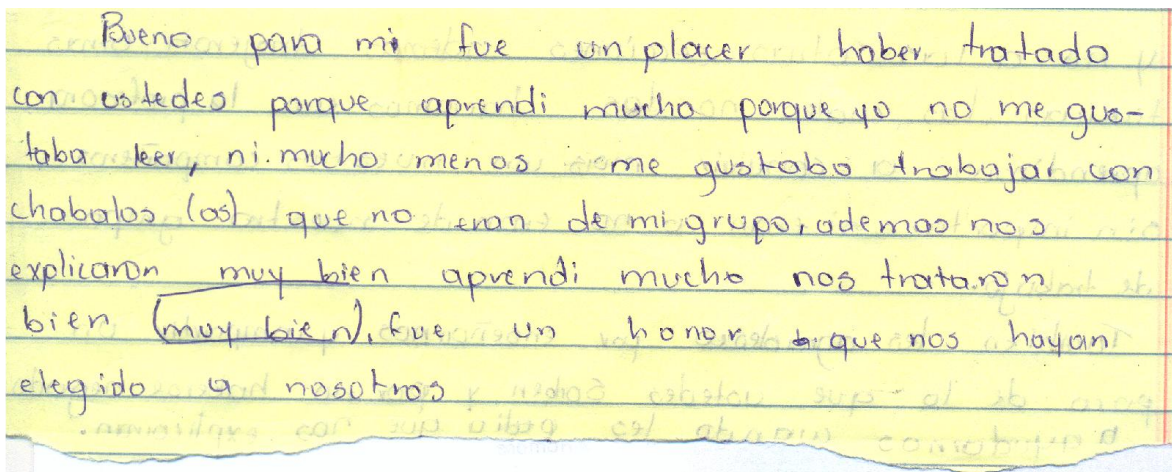 Bueno para mi fue un placer haber tratado
con ustedes porque aprendi mucho porque yo no me gus-
taba leer, ni mucho menos me gustaba trabajar con
chabalos (as) que no eran de mi grupo, ademas nos
explicaron muy bien aprendi mucho nos trataron
bien (muy bien), fue un honor que nos hayan
elegido a nosotros